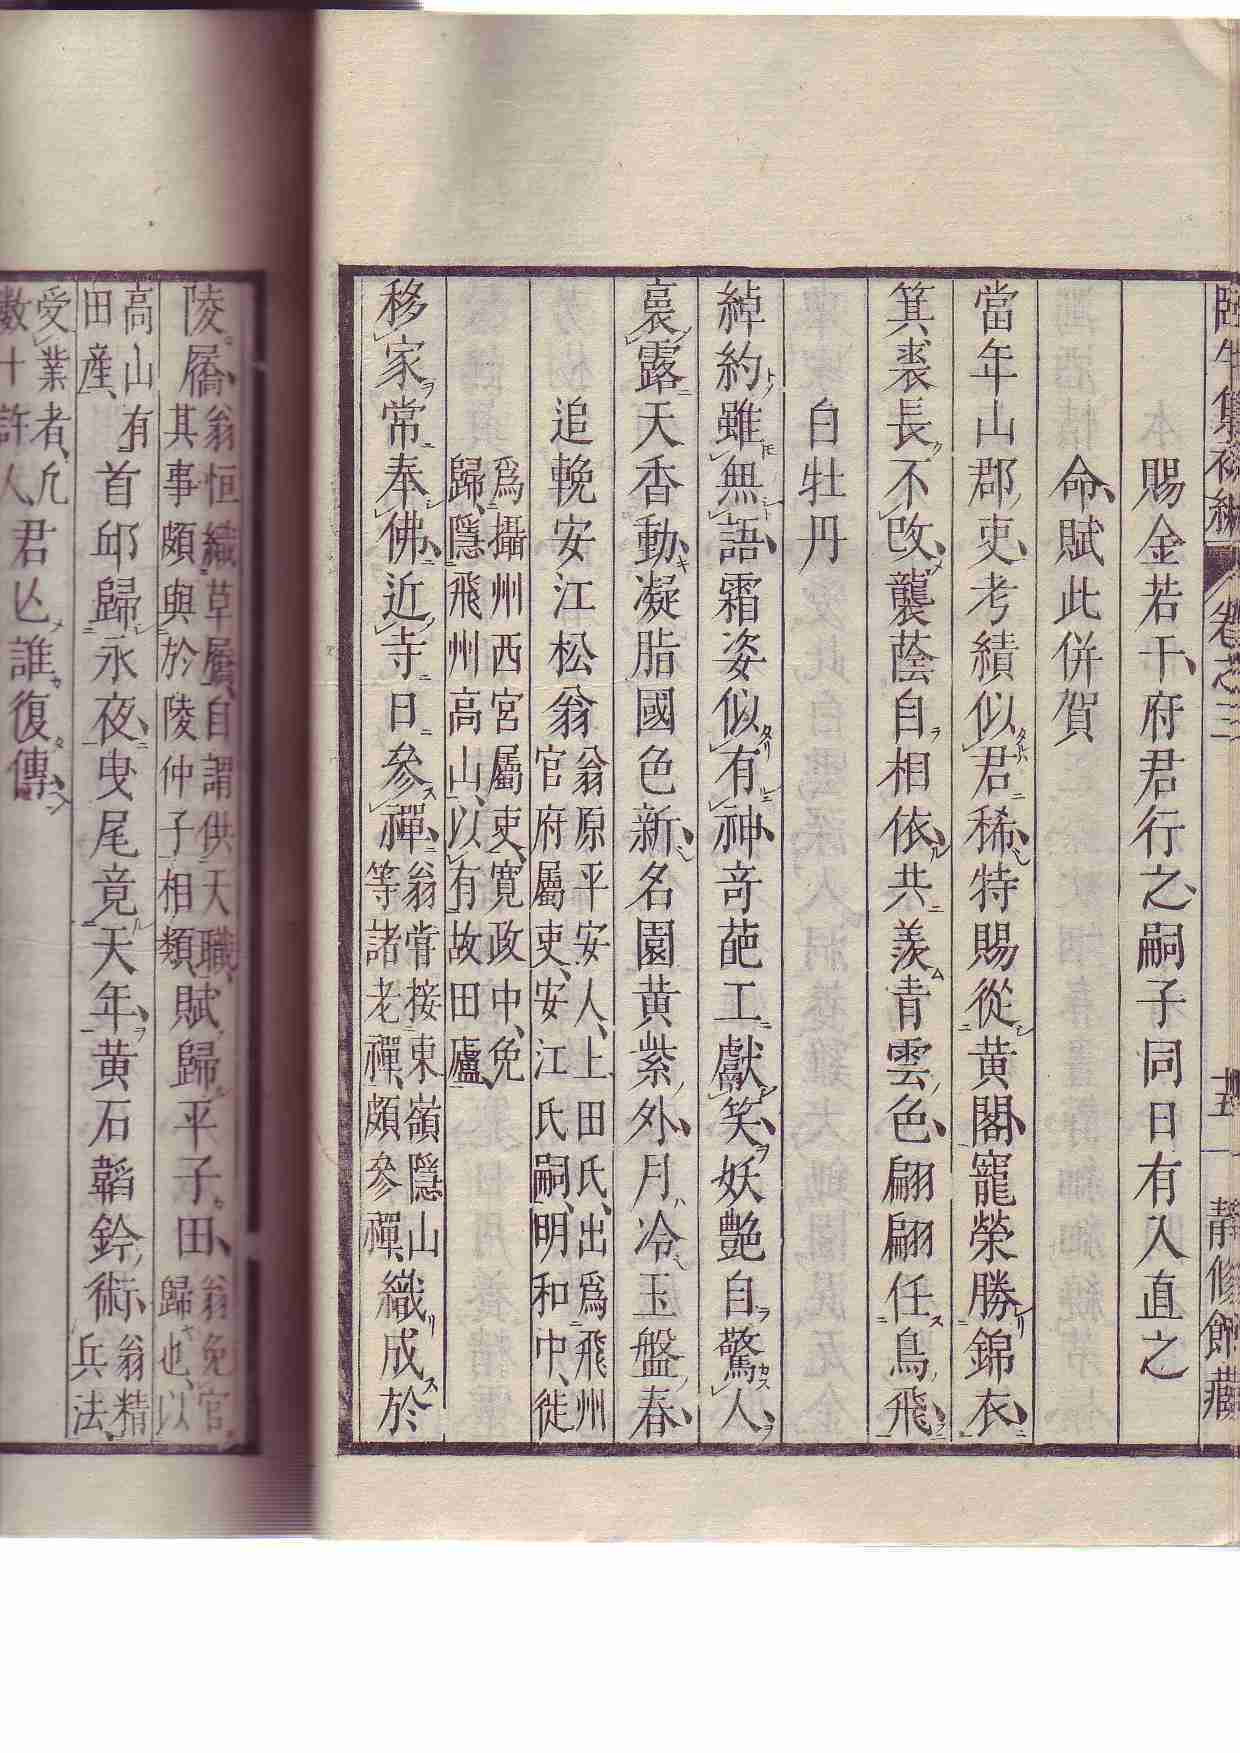 臥牛集初編 卷之三 十五 靜修館藏
本賜金若干、府君行之、嗣子同日有入直之
命、賦此併賀
當年山郡吏、考績似君稀、特賜從黃閣、寵榮勝錦衣、
箕裘長不改、襲蔭自相依、共羨青雲色、翩翩任鳥飛、
白牡丹
綽約雖無語、霜姿似有神、奇葩工獻笑、妖艷自驚人、
裛露天香動、凝脂國色新、名園黃紫外、月冷玉盤春、
追輓安江松翁
翁原平安人、上田氏、出爲飛州
官府屬吏、安江氏嗣、明和中、徙
爲攝州西宮屬吏、寬政中、免
歸、隱飛州高山、以有故田廬、
移家常奉佛、近寺日參禪、
翁嘗接東嶺隱山
等諸老禪、頗參禪、
織成於
陵屩、
翁恒織草屩、自謂供天職、
其事頗與於陵仲子相類、
賦歸平子田、
翁免官
歸也、以
高山有
田產、
首邱歸永夜、曳尾竟天年、黃石韜鈐術、
翁精
兵法、
受業者、凡
數十許人、
君亡誰復傳、